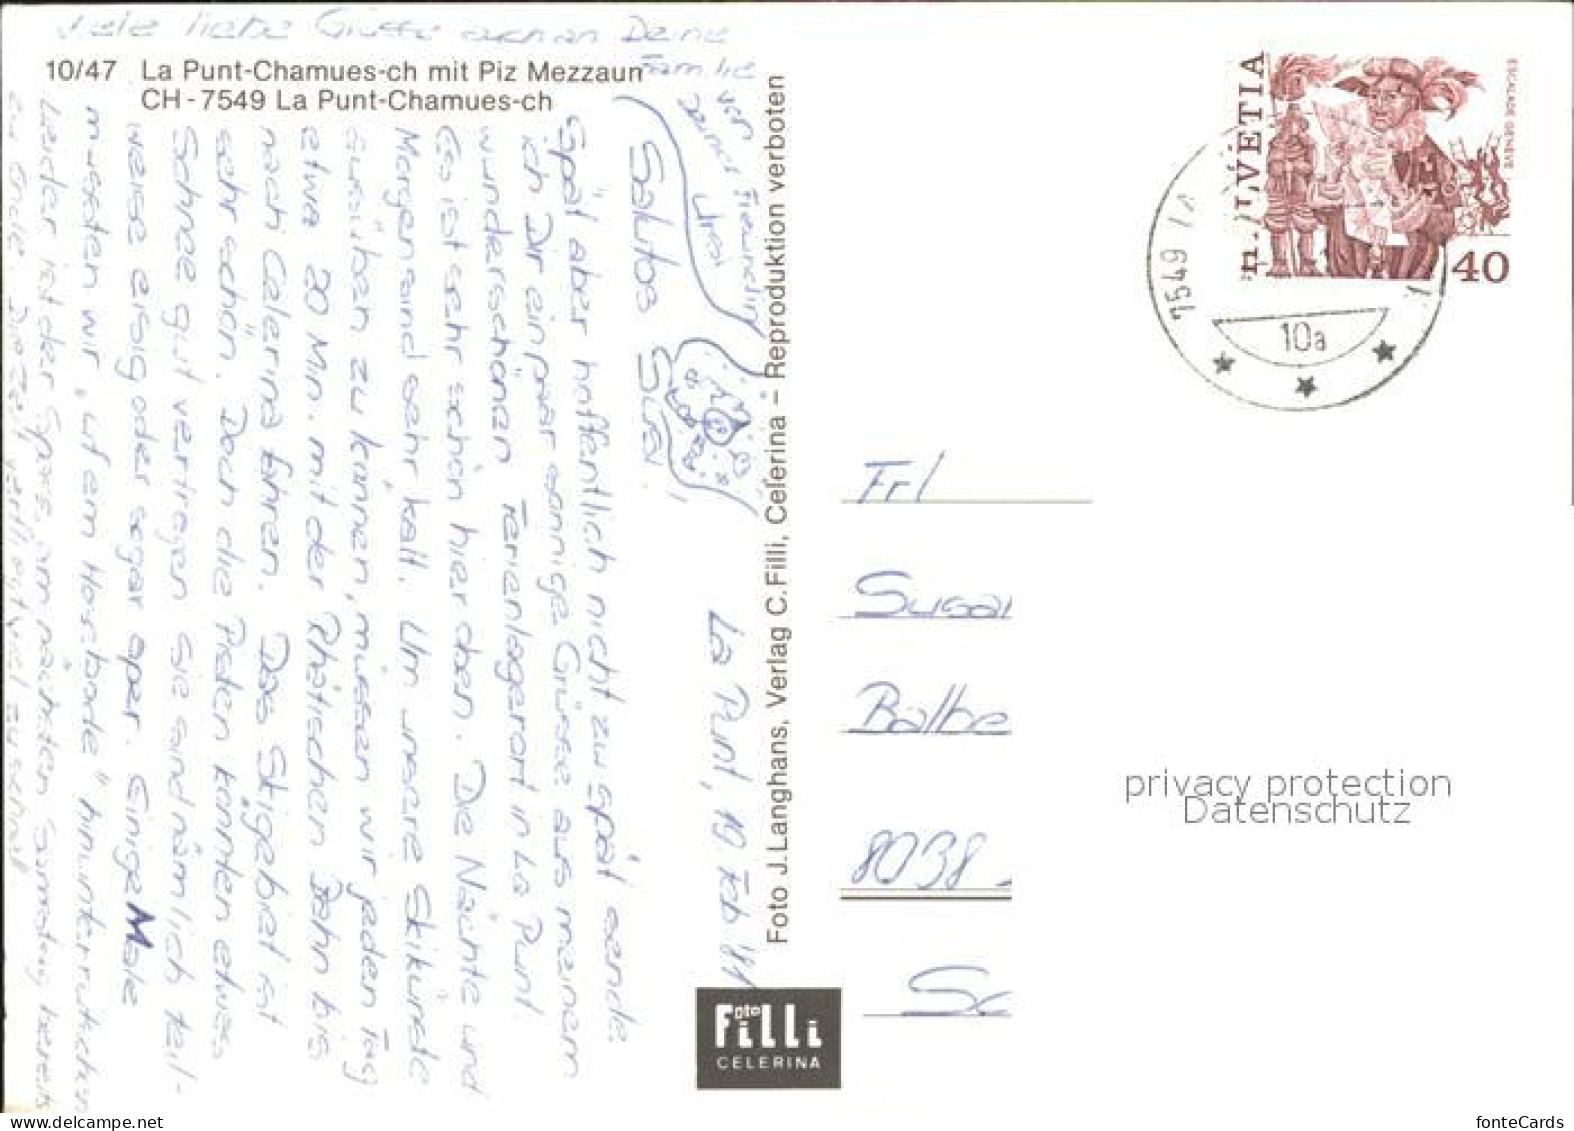 Viele liebe Grüsse auch an Deine
Familie
von
Deiner Freundin
Ursi
10/47 La Punt-Chamues-ch mit Piz Mezzaun
CH-7549 La Punt-Chamues-ch
La Punt, 19 Feb '81
Salutos Susi!
Spät aber hoffentlich nicht zu spät sende
ich Dir ein paar sonnige Grüsse aus meinem
wunderschönen Ferienlagerort in La Punt.
Es ist sehr schön hier oben. Die Nächte und
Morgen sind sehr kalt. Um unsere Skikünste
ausüben zu können, müssen wir jeden Tag
etwa 20 Min. mit der Rhätischen Bahn bis
nach Celerina fahren. Das Skigebiet ist
sehr schön. Doch die Pisten könnten etwas
Schnee gut vertragen. Sie sind nämlich teil-
weise eisig oder sogar aper. Einige Male
mussten wir „uf em Hosebode" hinunterrutschen
Leider ist der Spass am nächsten Samstag bereits
zu Ende. Die Zeit verfliegt viel zu schnell
Foto J. Langhans, Verlag C. Filli, Celerina – Reproduktion verboten
Foto
Filli
CELERINA
HELVETIA
ESCALADE GENÈVE
40
7549
10a
Frl
Susan
Balbe
8038
Sc
privacy protection
Datenschutz
fonteCards